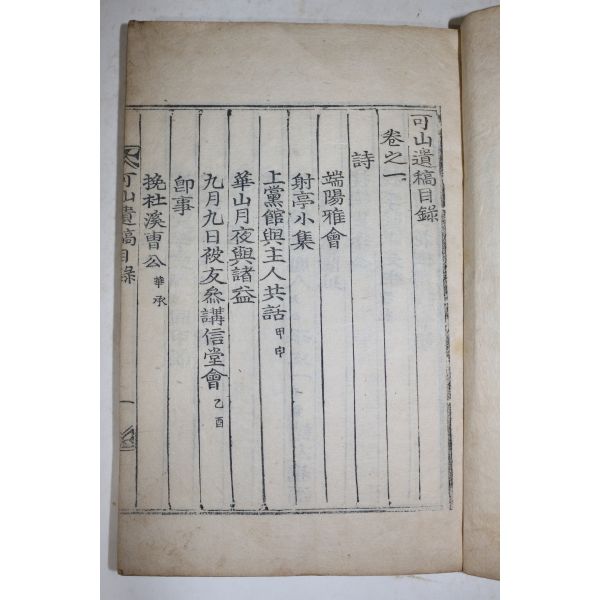 可山遺稿目錄
卷之一
詩
端陽雅會
射亭小集
上黨館與主人共話 甲申
華山月夜與諸益
九月九日被友參講信堂會 乙酉
卽事
挽社溪曺公 華承
可山遺稿目錄 一